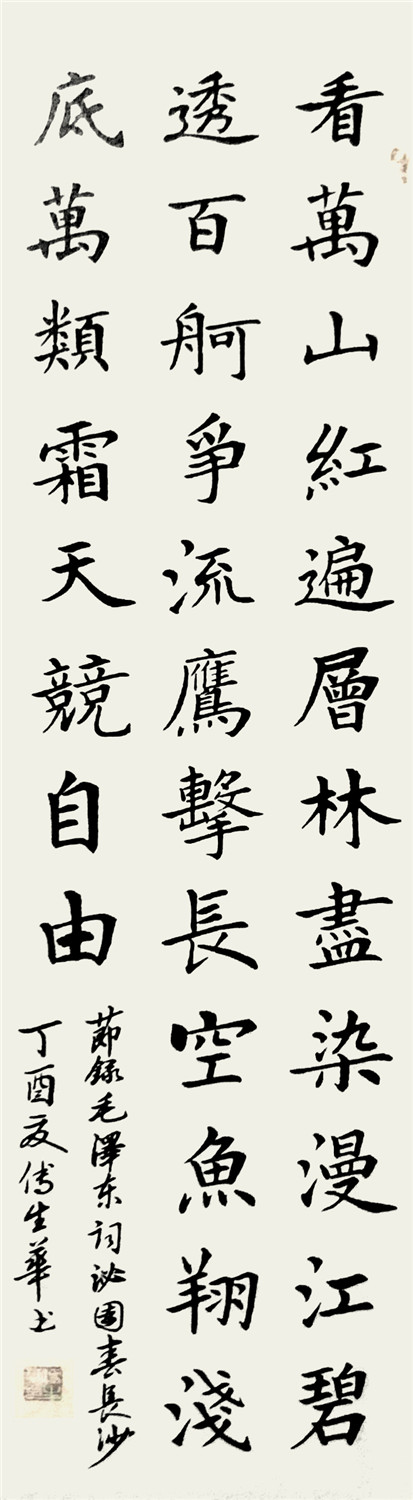 看萬山紅遍層林盡染漫江碧
透百舸爭流鷹擊長空魚翔淺
底萬類霜天競自由
節錄毛澤东词沁園春長沙
丁酉夏傅生華书